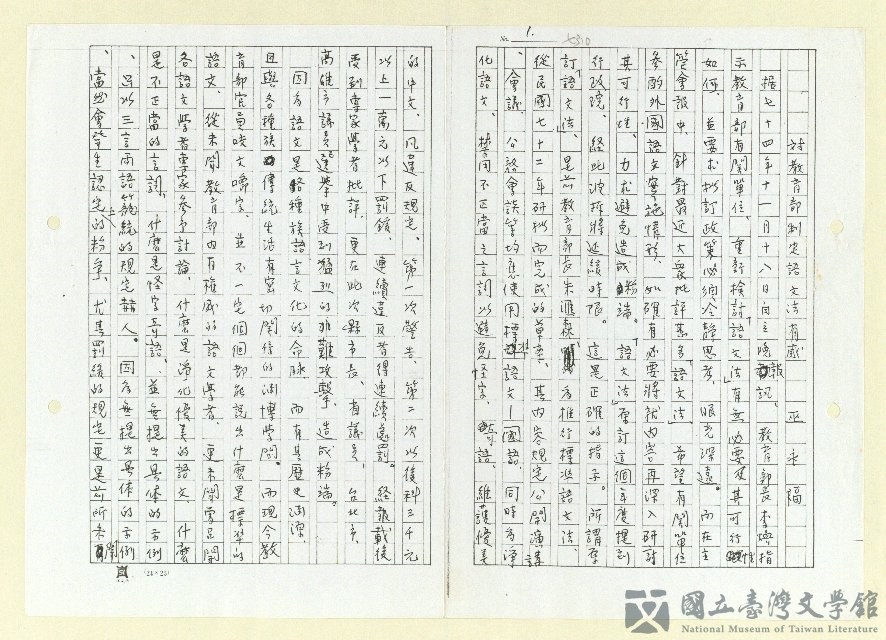 對教育部制定語文法有感　巫永福
據七十四年十一月十八日自立晚報訊、教育部長李煥指
示教育部有關單位、重新檢討「語文法」有無必要及其可行性
如何、並要求擬訂政策必須冷靜思考、眼光深遠。而在主
管會報中、針對最近大眾批評甚多「語文法」、希望有關單位
參酌外國語文實施情形、如確有必要將就內容再深入研討
其可行性、力求避免造成紛端。「語文法」原訂這個年度提到
行政院、經此波折將延緩時限。這是正確的指示。所謂原
訂「語文法」、是前教育部長朱滙森為推行標準語文法、
從民國七十二年研擬而完成的草案、其內容規定公開演講
、會議、公務會談等均應使用標準語文—國語、同時為淨
化語文、禁用不正當之言詞以避免怪字、髒語、維護優美
的中文、凡違反規定、第一次警告、第二次以後科三千元
以上一萬元以下罰鍰、連續違反者得連續處罰。經報載後
受到專家學者批評、更在此次縣市長、省議員、台北市、
高雄市議員選舉中受到猛烈的非難攻擊、造成紛端。
因為語文是各種族語言文化的命脉、而有其歷史淵源、
且與各種族傳統生活有密切關係的淵博學問。而現今教
育部官員咬文嚼字、並不一定個個都能說出什麼是標準的
語文、從未聞教育部內有權威的語文學者、更未聞曾召開
各語文學者專家參予討論、什麼是淨化優美的語文、什麼
是不正當的言詞、什麼是怪字、髒語、並無提出具體的示例
、只以三言兩語籠統的規定赫人。因為無提出具體的示例
、當然會發生認定上的紛爭、尤其罰鍰的規定更是前所未聞
No. 1.
(24×25)
國立臺灣文學館
National Museum of Taiwan Literature